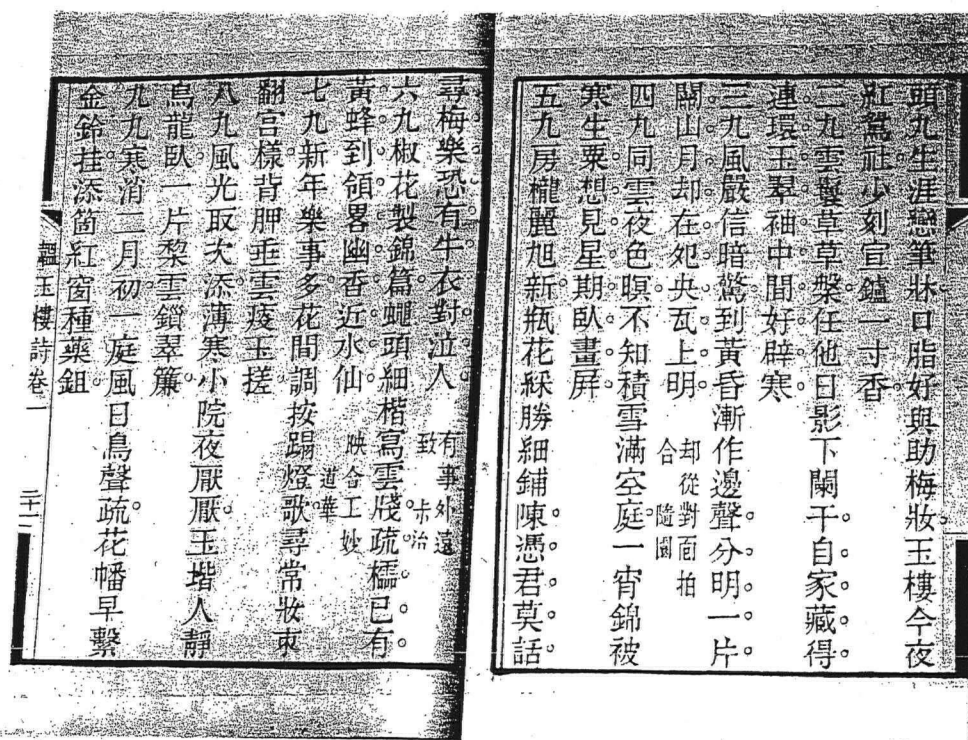 頭丸生涯戀筆牀口脂好與助梅妝玉樓今夜
紅鴛社少刻宣鑪一寸香
二九雲鬟草草槃任他日影下闌干自家藏得
連環玉翠袖中間好辟寒
三九風嚴信暗驚到黃昏漸作邊聲分明一片
關山月却在夗央瓦上明 却從對面拍合 隨園
四九同雲夜色暝不知積雪滿空庭一宵錦被
寒生粟想見星期臥畫屏
五九房櫳麗旭新瓶花綵勝細鋪陳憑君莫話
尋梅樂恐有牛衣對泣人 有事外遠致 未治
六九椒花製錦篇蠅頭細楷寫雲牋疏櫺已有
黃蜂到領畧幽香近水仙 映合工妙 道華
七九新年樂事多花間調按踢燈歌尋常妝束
翻宮樣背胛垂雲疲玉搓
八九風光取次添薄寒小院夜厭厭玉堦人靜
烏龍臥一片黎雲鎖翠簾
九九寒消二月初一庭風日鳥聲疏花幡早繫
金鈴挂添箇紅窗種藥鉏
韞玉樓詩卷一
二十一